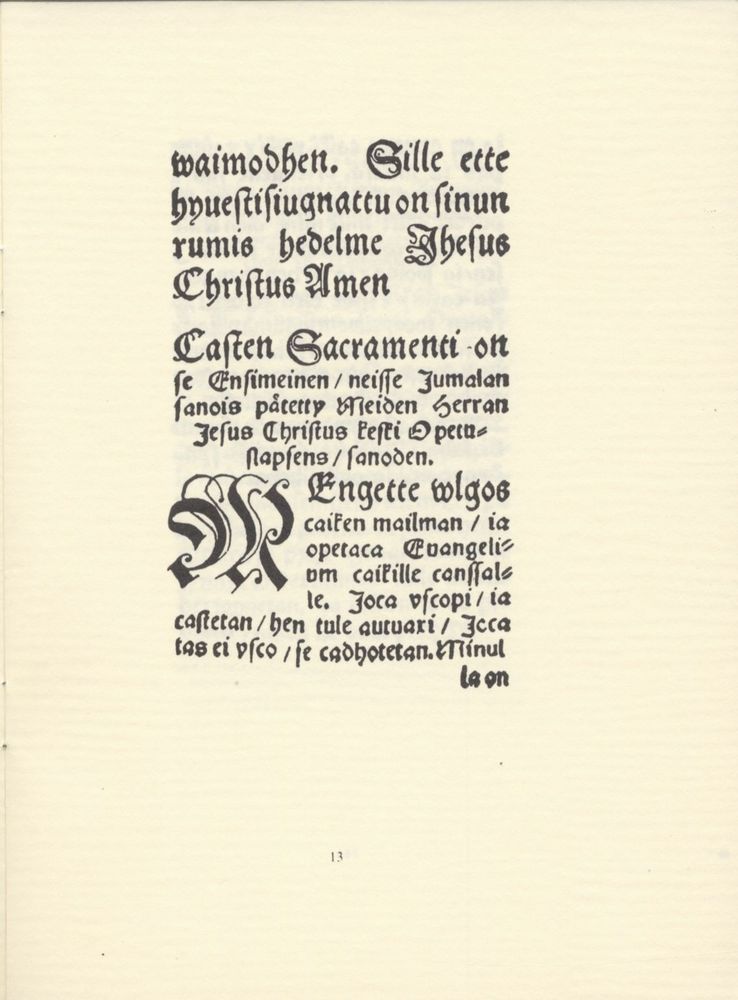 waimodhen. Sille ette
hyuestisiugnattu on sinun
rumis hedelme Jhesus
Christus Amen
Casten Sacramenti on
se Ensimeinen / neisse Jumalan
sanois pätetty Meiden Herran
Jesus Christus keski Opetu⸗
slapsens / sanoden.
MEngette wlgos
caiken mailman / ia
opetaca Euangeli⸗
vm caikille canssal⸗
le. Joca vscopi / ia
castetan / hen tule autuaxi / Jocca
tas ei vsco / se cadhotetan. Minul
la on
13